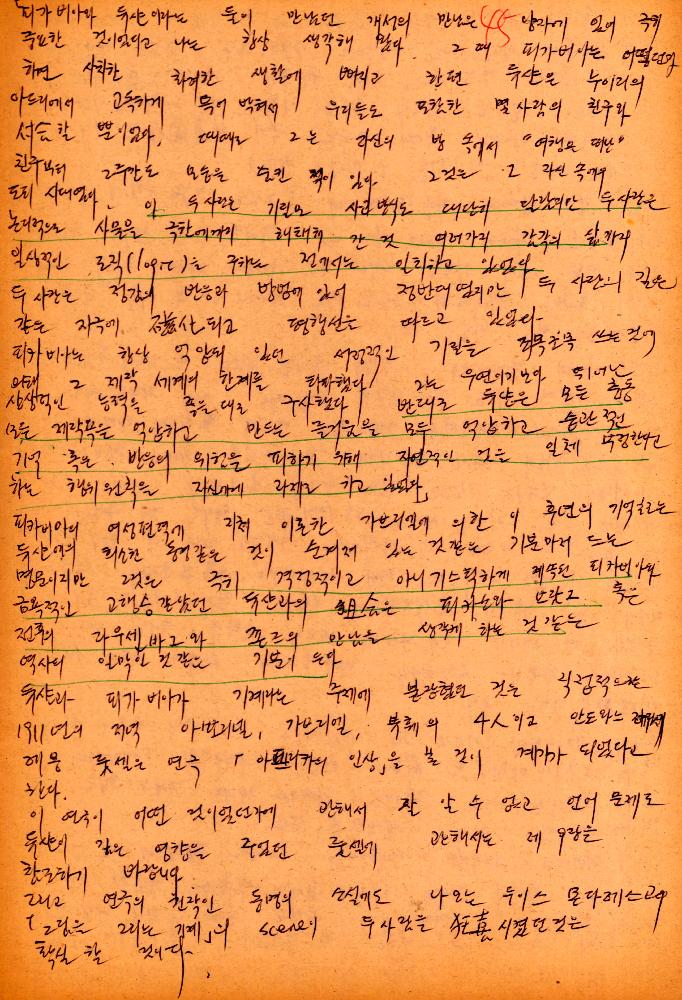 피카비아와 듀샹이라는 둘이 만났던 개성의 만남은 양자에 있어 극히
주요한 것이었다고 나는 항상 생각해 왔다. 그 때 피카비아는 어떠했던가
하면 사치한 화려한 생활에 빠지고 한편 듀샹은 누이리의
아뜨리에서 고독하게 틀어박혀서 우리들도 포함한 몇 사람의 친구와
서신할 뿐이었다. 때때로 그는 자신의 방 속에서 "여행을 떠난"
친구부터 2주간도 모습을 숨긴 적이 있다. 그것은 그 자신 속에의
도피 시대였다. 이 두 사람은 기질도 사고방식도 대단히 달랐지만 두 사람은
논리적으로 사물을 극한에까지 해체해 간 것 여러가지 감각의 삶까지
일상적인 로직(logic)을 구하는 점에서는 일치하고 있었다
두 사람은 정감의 반응과 방법에 있어 정반대였지만 두 사람의 길은
같은 자극에 되고 평행선을 따르고 있었다.
피카비아는 항상 억압되 있던 서정적인 기질을 쓰는 것에
의해 그 제작 세계의 한계를 타파했다 그는 우연이기보다 뛰어난
상상적인 능력을 구사했다 반대로 듀샹은 모든 충동
(모든 제작욕을 억압하고 만드는 즐거움을 모두 억압하고 습관적
기억 혹은 반응의 위험을 피하기 위해 자연적인 것은 일체 부정한다고
하는 행위원칙을 자신에게 과제로 하고 있었다」
피카비아의 여성편력에 지쳐 이혼한 가브리엘에 의한 이 후년의 기억으로는
듀샹에의 희소한 동경같은 것이 숨겨져 있는 것같은 기분마저 드는
명문이지만 그것은 극히 격정적이고 아니기스틱하게 피카비아와
금욕적인 고행승같았던 듀샹과의 組合은 피카소와 브랏크 혹은
전후의 라우센바그와 죤즈의 만남을 생각케 하는 것 같은
역사의 인 것 같은 기분이 든다
듀샹과 피카비아가 기계라는 주제에 직접적으로는
1911년의 저녁 아뽀리넬, 가브리엘, 4人이고 안도와느
레몽 룻셀은 연극 「아프리카의 인상」을 볼 것이 계기가 되었다고
한다.
이 연극이 어떤 것이었던가에 관해서 잘 알 수 없고 언어 문제로
듀샹이 깊은 영향을 주었던 룻셀에 관해서는 제 9장을
참조하기 바랍니다
그리고 연극의 원작인 동명의 소설에도 나오는 루이스 몬다레스고의
「그림을 그리는 기계」의 scene이 두사람을 狂喜시켰던것은
확실할 것이다.